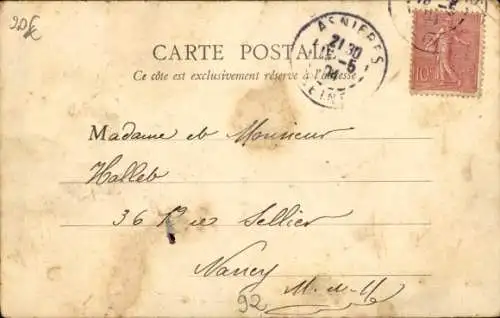 20f
ASNIERES
21 30
2-5
SEINE
10c
CARTE POSTALE
Ce côté est exclusivement réservé à l'adresse
Madame et Monsieur
Halleb
36 Rue Sellier
Nancy
M-et-M
92